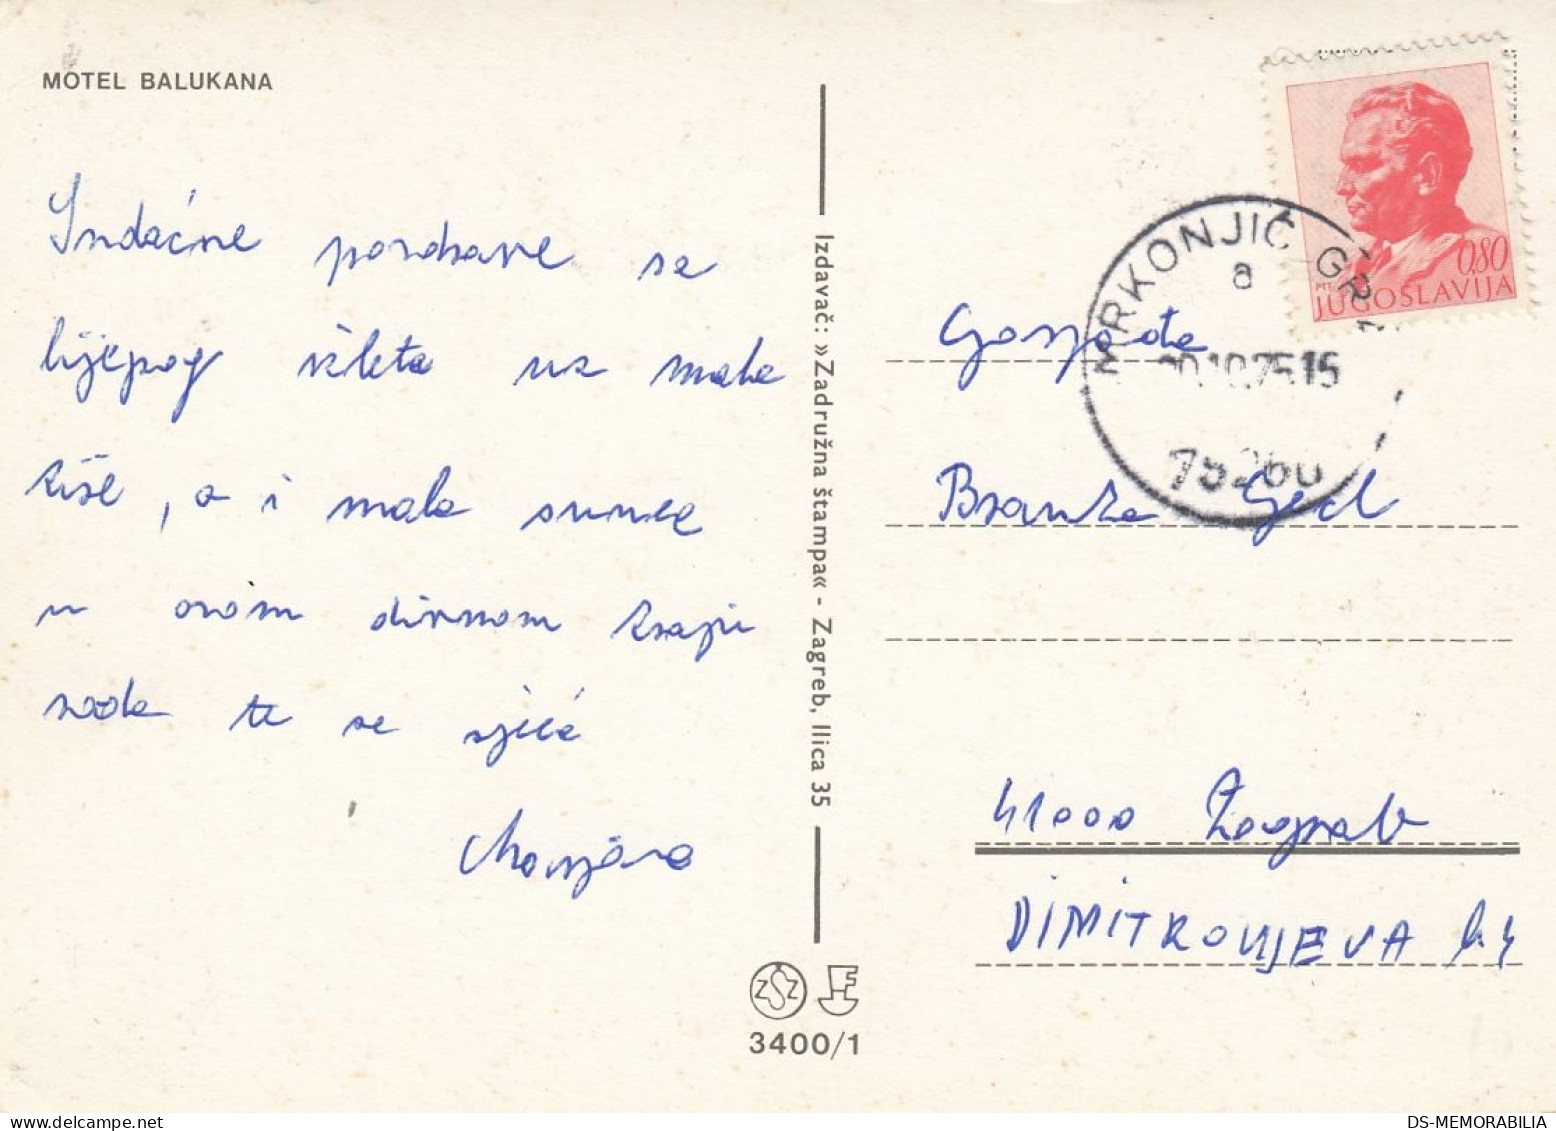 MOTEL BALUKANA
Srdačne pozdrave sa
lijepog izleta uz malo
kiše, a i malo sunca
u ovom divnom kraju
rado te se sjeća
Marijana
Izdavač: »Zadružna štampa« - Zagreb, Ilica 35
ZSZ
3400/1
0,80
JUGOSLAVIJA
MRKONJIĆ GRAD
a
10.75 15
Gospođa
Branka
41000 Zagreb
DIMITROVLJEVA
DS-MEMORABILIA